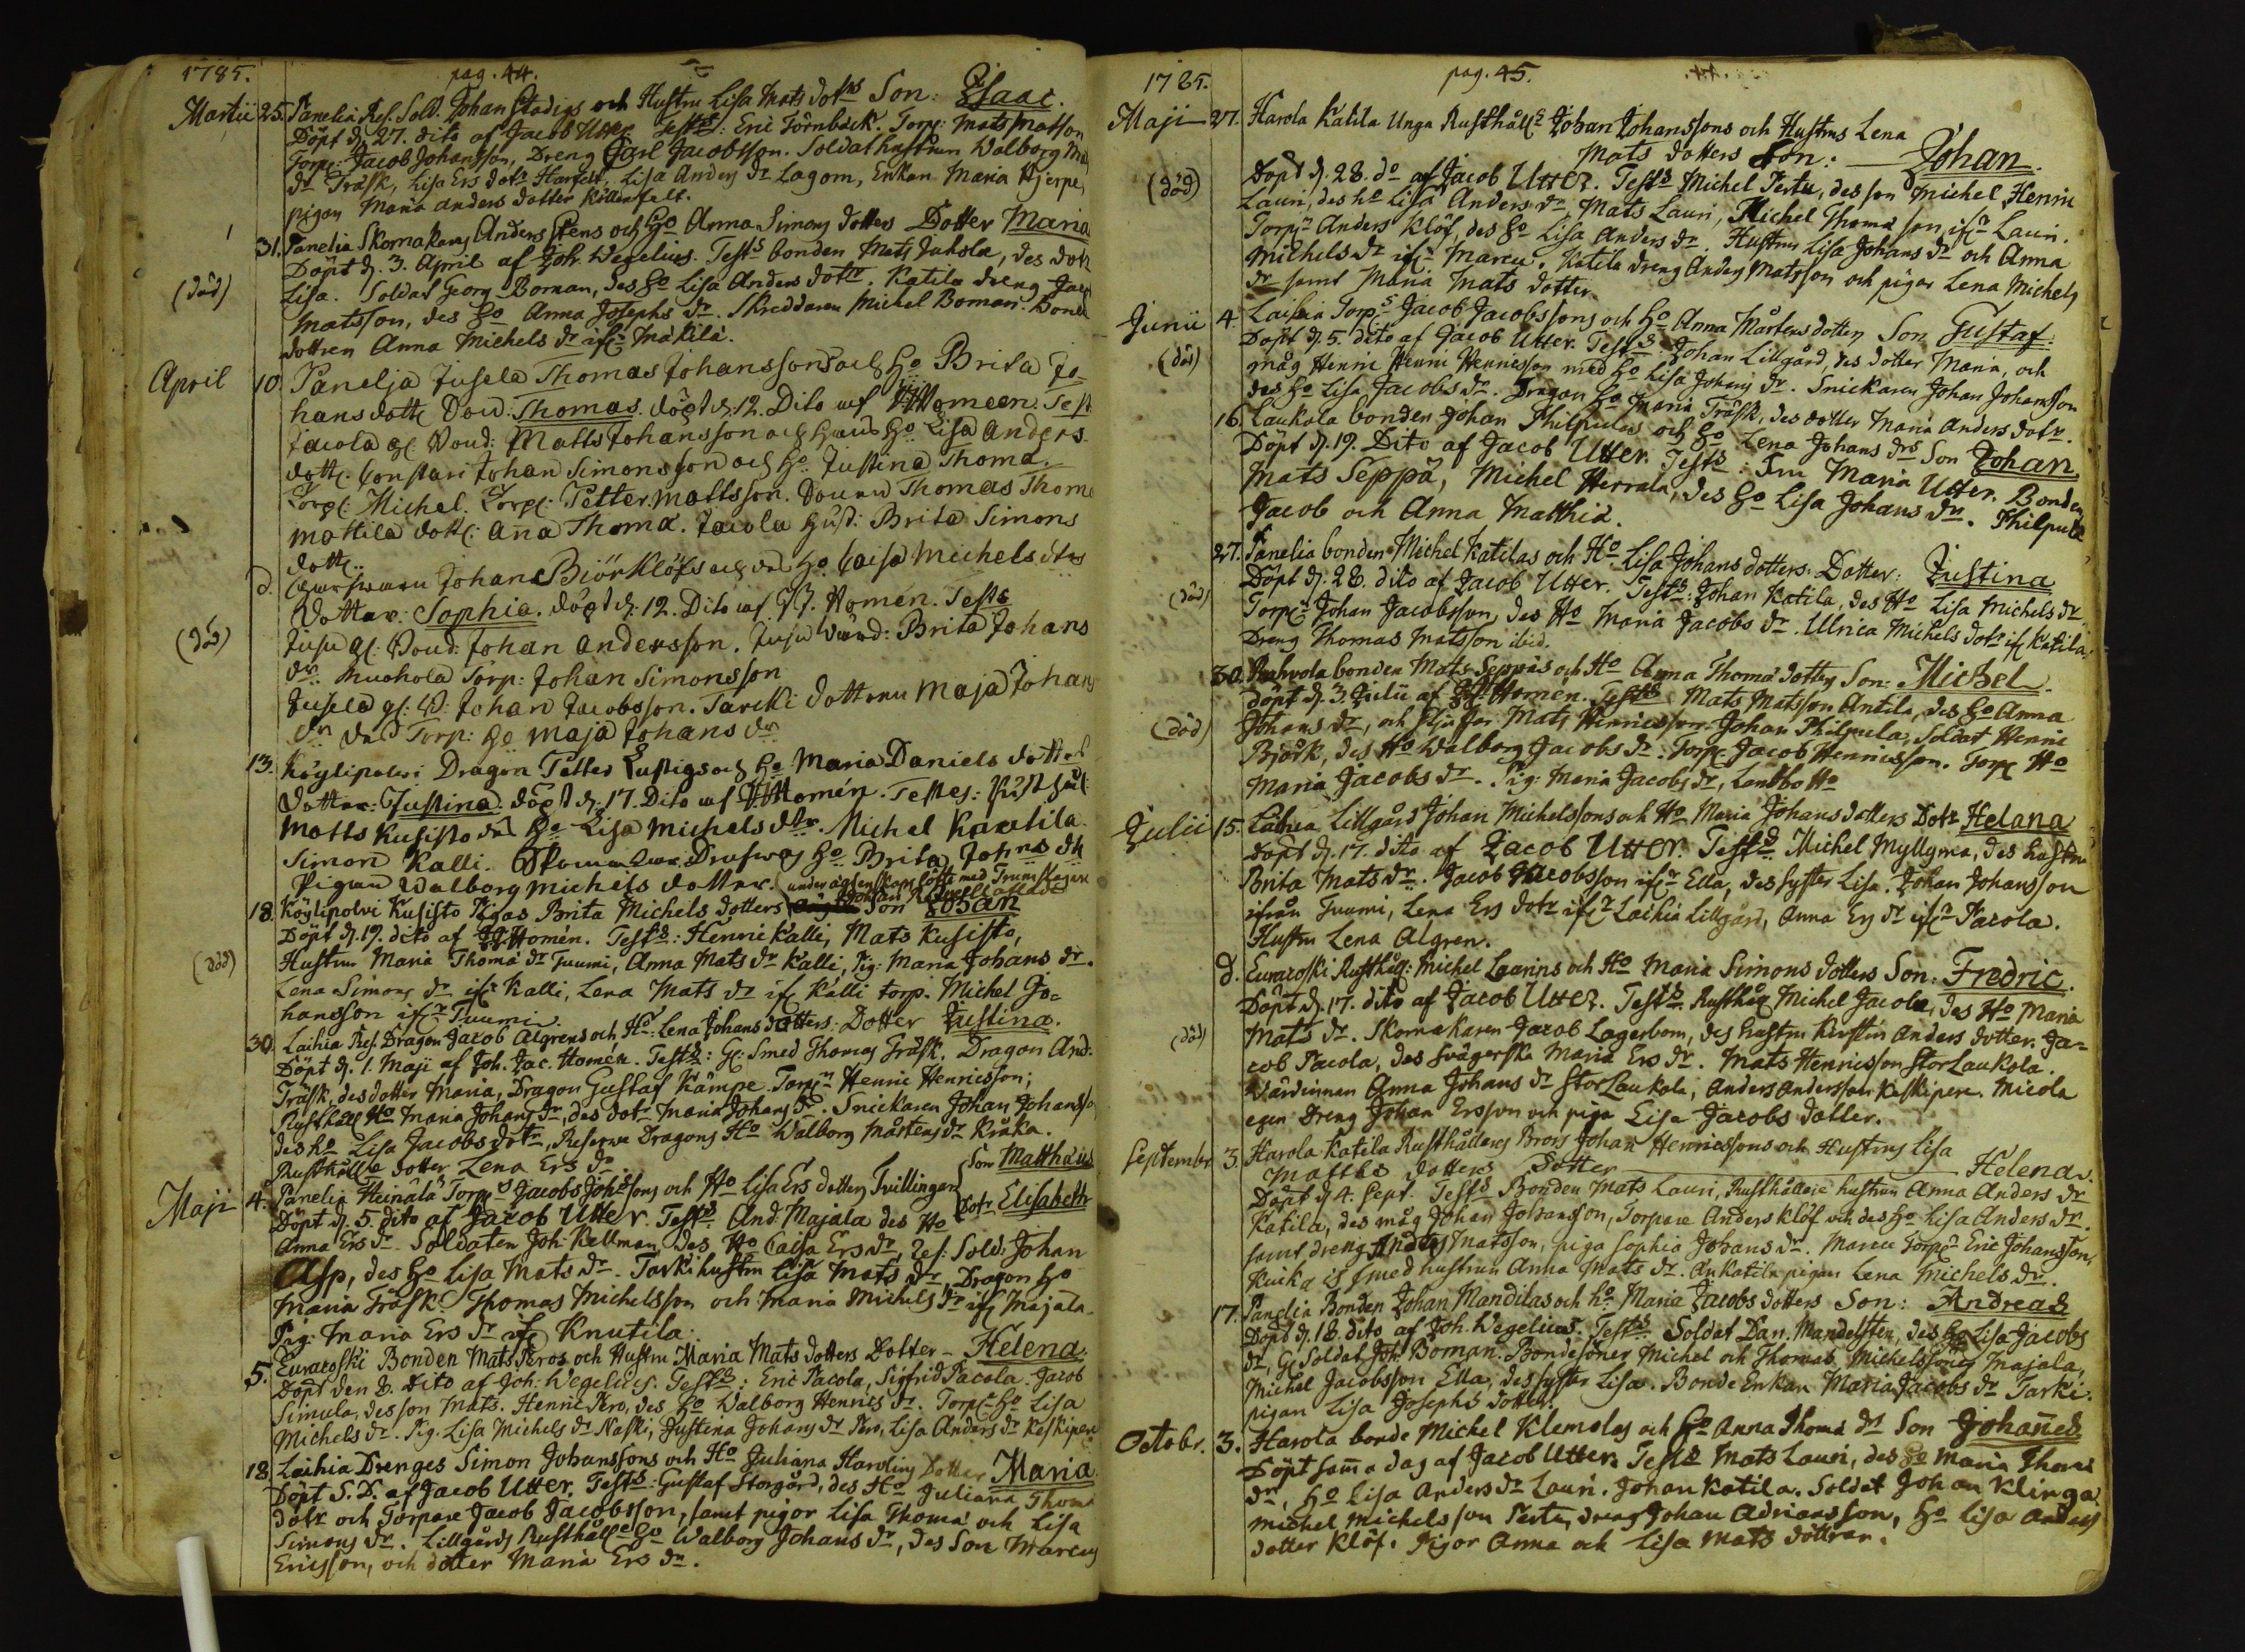 1785.
pag. 44.
Martii 25. Panelia Res. Sold. Johan Stadigs och Hustru Lisa Mats dotrs Son: Isaac.
Döpt d. 27. dito af Jacob Utter Tests: Eric Törnbäck. Torp: Mats Matsson
Torp: Jacob Johansson, Dreng Carl Jacobsson. Soldat hustrun Walborg
dr Träsk, Lisa Ers dotr, Lisa Anders dr Lagom, Enkan Maria Hjerpe,
pigan Maria Anders dotter
31. Panelia Skomakarens Anders Stens och Ho Anna Simons dotters Dotter Maria
Döpt d. 3. April af Joh. Wegelius. Tests bonden Mats Juhola, des dotr
(död)
Lisa. Soldat Georg Boman, des Ho Lisa Anders dotr. Katila dreng Jacob
Matsson, des Ho Anna Josephs dr. Skreddaren Michel Boman. Bonde
dottren Anna Michels dr ifr Mäkilä.
April 10. Panelja Jusela Thomas Johanssons och Ho Brita Jo
hans dotts Son: Thomas. döpt d. 12. Dito af Homeen. Test
Jacola Bond: Matts Johansson och hans Ho Lisa Anders
dotts Johan Simonsson och Ho Justina Thoma
Torp: Michel. Torp: Petter Mattsson. Thomas Thoma
Mattila dotts: Aña Thoma. Jacola Hust: Brita Simons
dotts.
d. Johan Björklöfs och Ho Caisa Michels dtrs
Dotter: Sophia. döpt d: 12. Dito af Homén. Tests
(död)
Bond: Johan Andersson. Brita Johans
dr: Torp: Johan Simonsson
Jusela Johan Jacobsson. Tarcki dottren Maja Johans
dr Torp: Ho Maja Johans dr
13. Köylipolvi Dragon Petter Lustigs och Ho Maria Daniels dotters
Dotter: Justina. döpt d: 17. Dito af Homén. Testes:
Matts Kusisto Ho Lisa Michels dtr. Michel Kawtila
Simon Kalli. Ho Brita Johns dtr
Pigan Walborg Michels dotter.
under ägtenskaps löfte med Trumslagare
Johan
18. Köylipolvi Kusisto Pigas Brita Michels dotters Son Johan
Döpt d. 19. dito af Homén. Tests: Henric Kalli, Mats Kusisto,
(död)
Hustrun Maria Thoma dr Tuumi, Anna Mats dr Kalli, Pig: Maria Johans dr.
Lena Simons dr ifr Kalli, Lena Mats dr ifr Kalli torp. Michel Jo=
hansson ifr Tuumi.
30. Laihia Res. Dragon Jacob Algrens och Ho: Lena Johans dotters: Dotter Justina.
Döpt d. 1. Maji af Joh. Jac. Homén. Tests: Gl: Smed Thomas Träsk. Dragon And:
Träsk, des dotter Maria, Dragon Gustaf Kämpe. Torp. Henric Henricsson;
Rusthåll Ho Maria Johans dr, des dotr Maria Johans dr. Snickaren Johan Johansson
des ho Lisa Jacobs dotr, Reserve Dragons Ho Walborg Mårtens dr Kråka.
Rusthåll dotter Lena Ers dr
Son Matthæus
Maji 4. Panelia Heinälä Torp Jacobs Johssons och Ho Lisa Ers dotters Tvillingar Dotr Elisabeth
Döpt d. 5. dito af Jacob Utter. Tests And. Majala des Ho
Anna Ers dr. Soldaten Joh: Kellman, des Ho Caisa Ers dr, Res: Sold: Johan
Asp, des Ho Lisa Mats dr. Tarki hustru Lisa Mats dr, Dragon Ho
Maria Träsk. Thomas Michelsson och Maria Michels dr ifr Majala.
Pig: Maria Ers dr ifr Knutila.
5. Euraroski Bonden Mats Peros och Hustru Maria Mats dotters Dotter - Helena.
Döpt den 8. Dito af Joh: Wegelius. Tests: Eric Pacola, Sigfrid Pacola. Jacob
Simula, des son Mats. Henric Pero, des Ho Walborg Henrics dr. Torp: Ho Lisa
Michels dr. Pig. Lisa Michels dr Naski, Justina Johans dr Pero, Lisa Anders dr Keskipere
18. Laihia Drenges Simon Johanssons och Ho Juliana Hardins Dotter Maria.
Döpt S. D. af Jacob Utter. Tests: Gustaf Storgård, des Ho Juliana Thoma
dotr och Torpare Jacob Jacobsson, samt pigor Lisa Thoma och Lisa
Simons dr. Lillgårds Rusthåll Ho Walborg Johans dr, des Son Marcus
Ericsson, och dotter Maria Ers dr.
1785.
pag. 45.
Maji 27. Harola Katila Unga Rusthåll Johan Johanssons och Hustrus Lena
Mats dotters Son: Johan.
(död)
Döpt d. 28. do af Jacob Utter. Tests Michel Pertu, des son Michel, Henric
Lauri, des ho Lisa Anders dr, Mats Lauri, Michel Thomasson ifr Lauri.
Torp Anders Klöf, des Ho Lisa Anders dr. Hustru Lisa Johans dr och Anna
Michels dr ifr Marcu. Katila dreng Anders Matsson och pigor Lena Michels
dr samt Maria Mats dotter.
Junii 4. Laihia Torps Jacob Jacobssons och Ho Anna Mårtens dotters Son Gustaf.
(död)
Döpt d. 5. dito af Jacob Utter. Tests: Johan Lillgård, des dotter Maria, och
måg Henric Henricsson med Ho Lisa Johans dr. Snickaren Johan Johansson
des Ho Lisa Jacobs dr. Dragon Ho Maria Träsk, des dotter Maria Anders dotr.
16. Laukola bonden Johan Philpulas och Ho Lena Johans drs Son Johan
Döpt d. 19. Dito af Jacob Utter. Tests: Fru Maria Utter. Bonden
Mats Seppä, Michel Herrala, des Ho Lisa Johans dr. Philpula
Jacob och Anna Matthiæ.
27. Panelia bonden Michel Katilas och Ho Lisa Johans dotters: Dotter: Justina
(död)
Döpt d. 28. dito af Jacob Utter. Tests: Johan Katila, des Ho Lisa Michels dr
Torp Johan Jacobsson, des Ho Maria Jacobs dr. Ulrica Michels dotr ifr Katila.
Dreng Thomas Matsson ibid.
30. Rahvola bonden Mats Seppäs och Ho Anna Thoma dotters Son: Michel.
döpt d. 3. Julii af Homén. Tests Mats Matsson Antila, des Ho Anna
(död)
Johans dr, och Mats Henricsson. Johan Philpula, Soldat Henric
Björk, des Ho Walborg Jacobs dr. Torp Jacob Henricsson. Torp Ho
Maria Jacobs dr. Pig: Maria Jacobs dr, Landbo Ho
Julii 15. Laihia Lillgård Johan Michelssons och Ho Maria Johans dotters Dotr Helana
Döpt d. 17. dito af Jacob Utter. Tests Michel Myllyma, des hustru
Brita Mats dr. Jacob Jacobsson ifr Ella, des syster Lisa. Johan Johansson
ifrån Tuumi, Lena Ers dotr ifr Laihia Lillgård, Anna Ers dr ifr Pacola.
Hustru Lena Algren.
d. Euraroski Rusthåll: Michel Laurins och Ho Maria Simons dotters Son: Fredric.
Döpt d. 17. dito af Jacob Utter. Tests. Rusthåll Michel Jacola, des Ho Maria
(död)
Mats dr. Skomakaren Jacob Lagerbom, des hustru Kirstin Anders dotter. Ja=
cob Pacola, des Svägerska Maria Ers dr. Mats Henricsson Stor Laukola.
Värdinnan Anna Johans dr Stor Laukola, Anders Andersson Keskipere. Micola
egen Dreng Johan Ersson och piga Lisa Jacobs dotter.
Septembr. 3. Harola Katila Rusthållares Brors Johan Henricssons och Hustrus Lisa
Matths dotters Dotter Helena.
Döpt d. 4. Sept. Tests Bonden Mats Lauri, Rusthållare hustrun Anna Anders dr
Katila, des måg Johan Johansson, Torpare Anders Klöf och des Ho Lisa Anders dr.
samt dreng Anders Matsson, piga Sophia Johans dr. Marcu Torp Eric Johansson,
Kuika smed hustrun Anna Mats dr. Ankatila pigan Lena Michels dr.
17. Panelia Bonden Johan Mandilas och ho Maria Jacobs dotters Son: Andreas
Döpt d. 18. dito af Joh. Wegelius. Tests. Soldat Dan. Mandelsten, des Ho Lisa Jacobs
dr, Gl Soldat Joh. Boman. Bondesöner Michel och Thomas Michelssöner Majala,
Michel Jacobsson Ella, des syster Lisa. Bonde Enkan Maria Jacobs dr Tarki.
pigan Lisa Josephs dotter.
Octobr. 3. Harola bonde Michel Klemolas och Ho Anna Thoma dr Son Johañes
Döpt sam̄a dag af Jacob Utter. Tests Mats Lauri, des Ho Maria Thoma
dr, Ho Lisa Anders dr Lauri. Johan Katila. Soldat Johan Klinga
Michel Michelsson Pertu, dreng Johan Adriansson, Ho Lisa Anders
dotter Klöf. Pigor Anna och Lisa Mats döttrar.